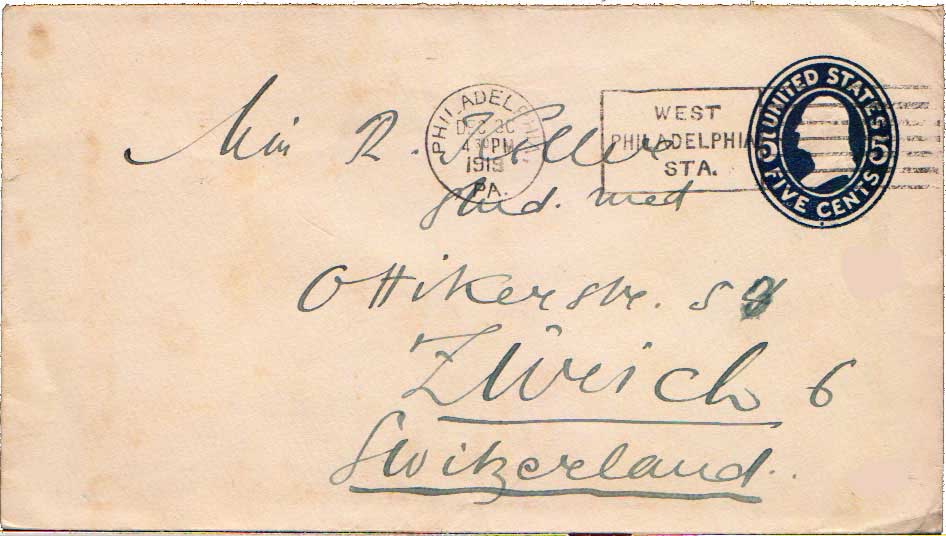 PHILADELPHIA, PA.
DEC
4 30 PM
1919
WEST
PHILADELPHIA
STA.
UNITED STATES
5 5
FIVE CENTS
Miss R.
stud. med
Ottikerstr.
Zürich 6
Switzerland.